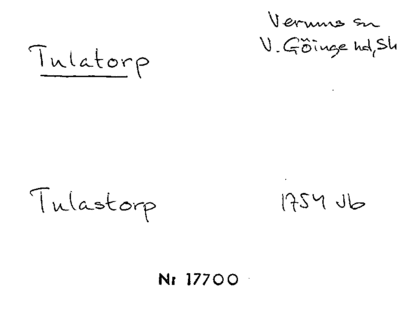 Tulatorp
Verums sn
V. Göinge hd, Sk
Tulastorp
1754 Jb
Nr 17700